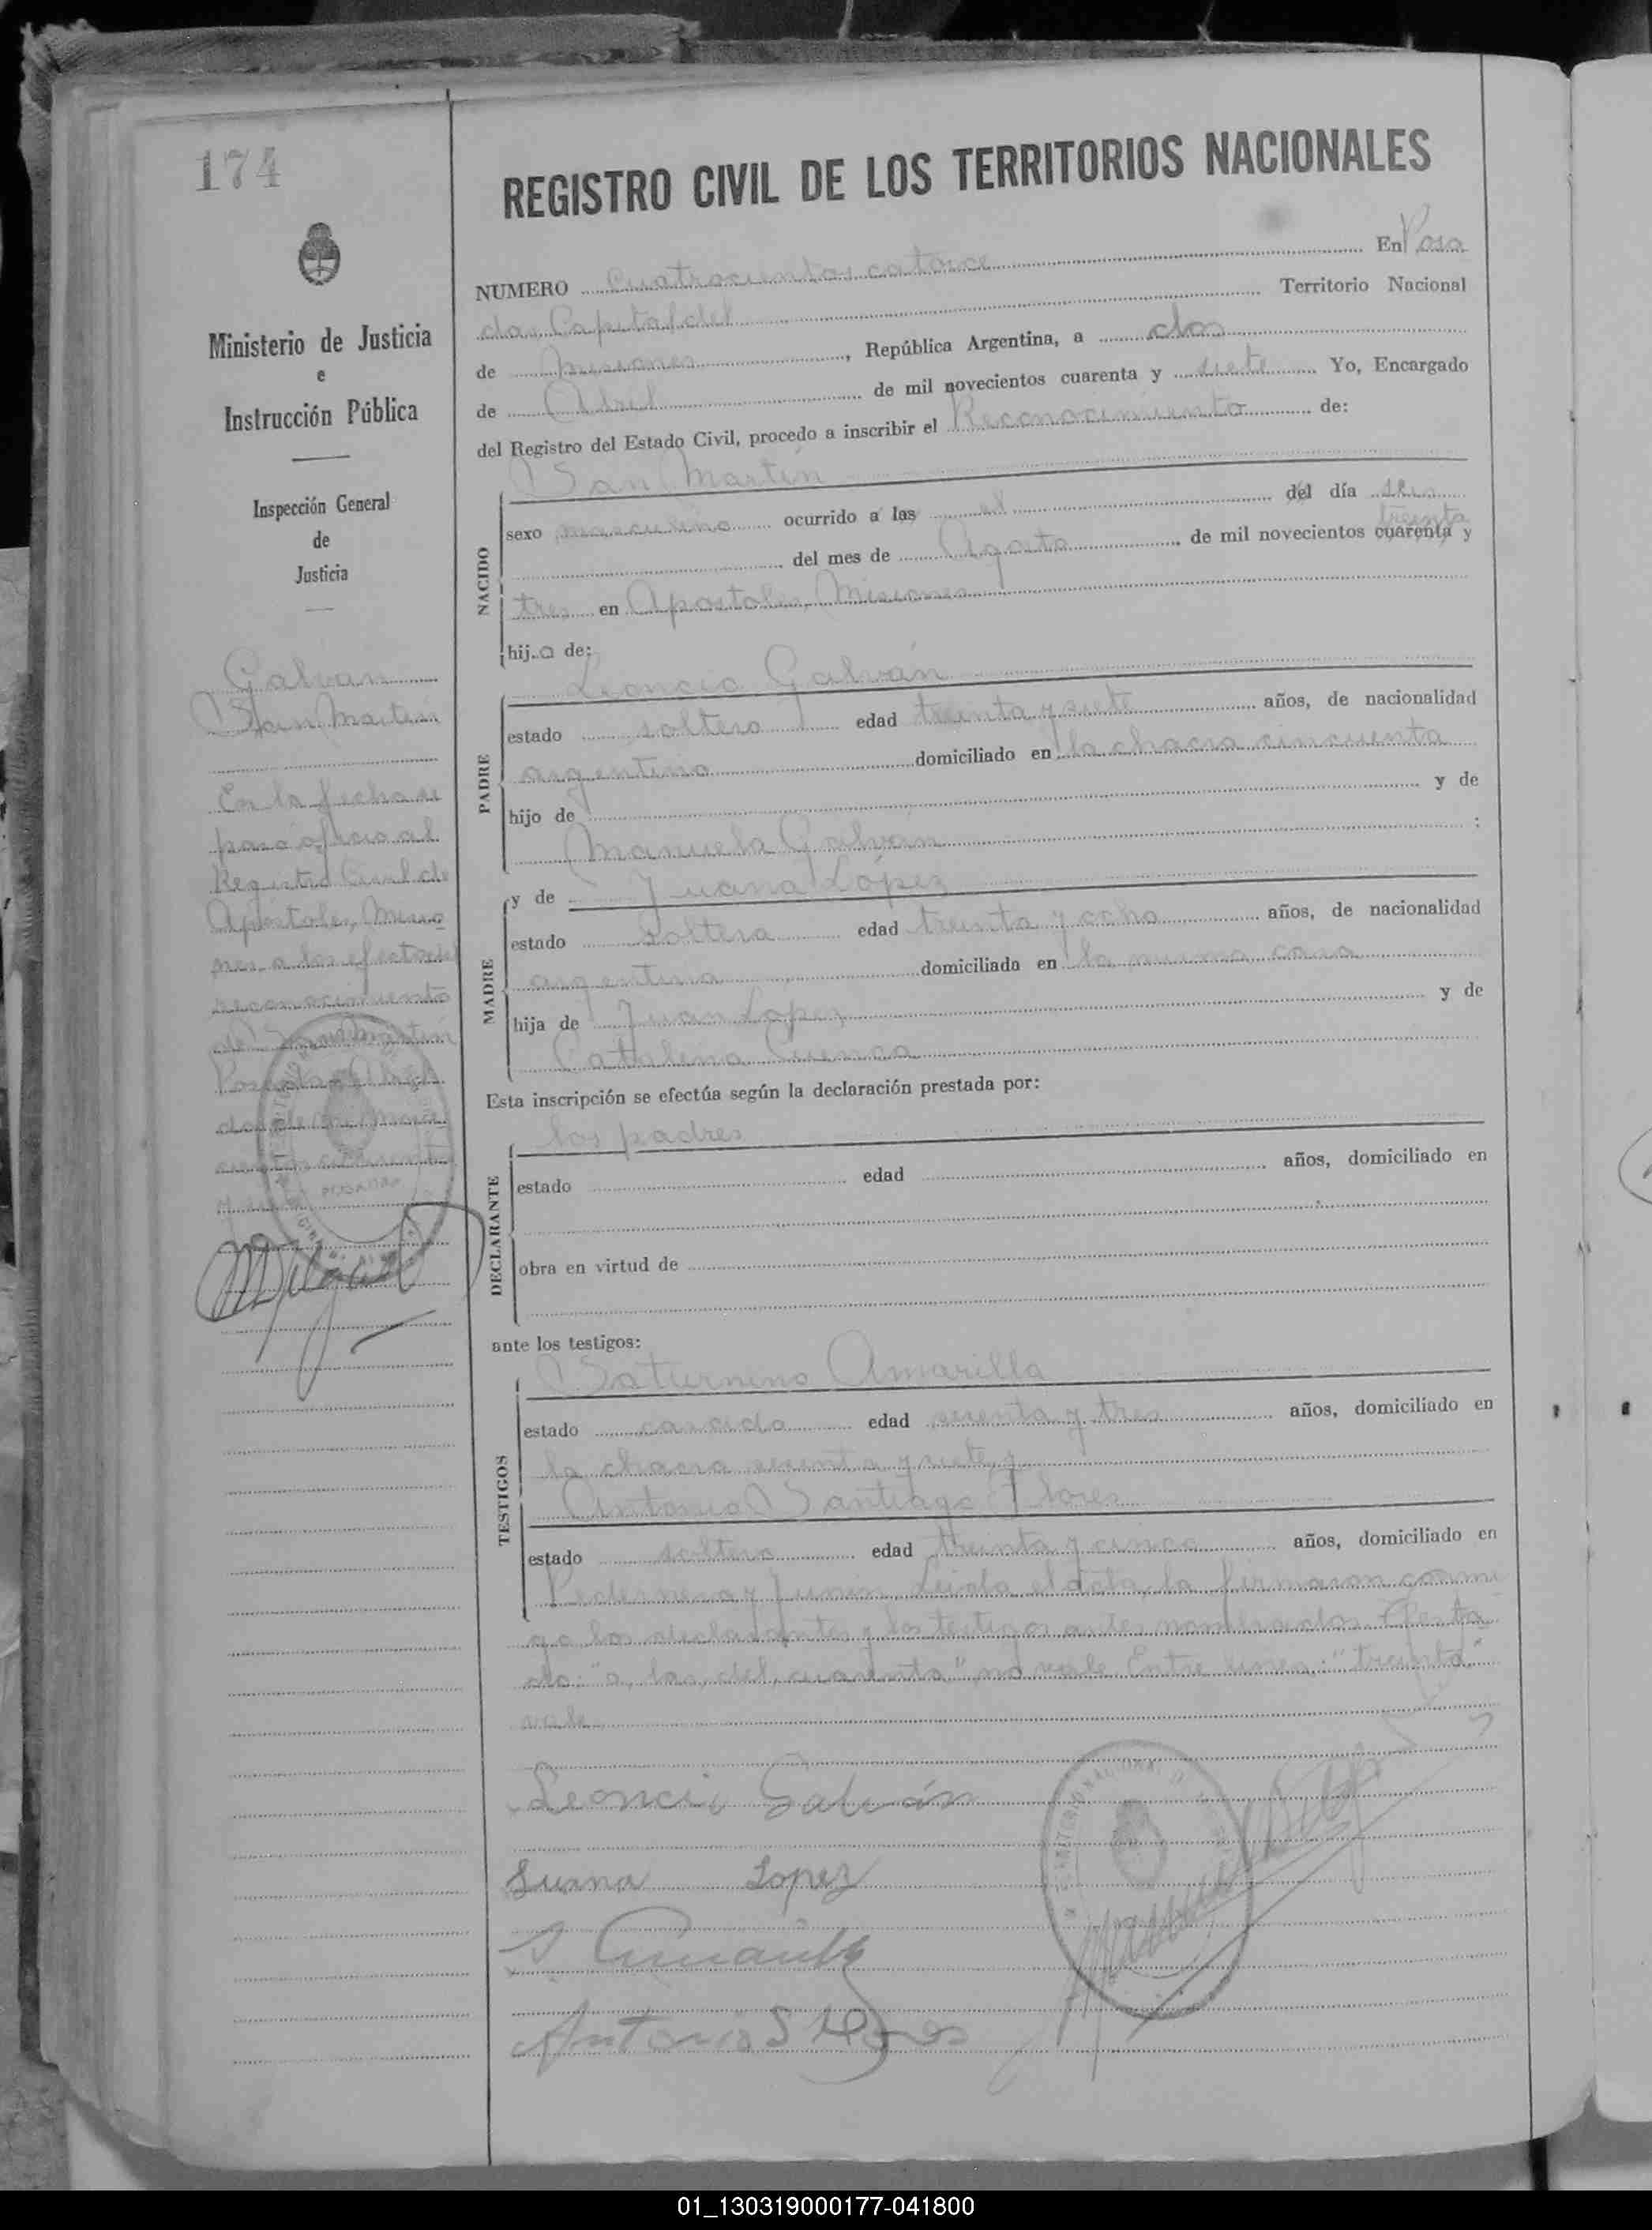 174
REGISTRO CIVIL DE LOS TERRITORIOS NACIONALES
Ministerio de Justicia
e
Instrucción Pública
Inspección General
de
Justicia
Galvan
San Martin
En la fecha se
paso oficio al
Registro Civil de
Apóstoles, Misio
nes a los efectos del
reconocimiento
de San Martín
Posadas, Abril
dos de mil nove
cientos cuarenta
y siete
NUMERO Cuatrocientos catorce En Posa
das Capital del Territorio Nacional
de Misiones, República Argentina, a dos
de Abril de mil novecientos cuarenta y siete Yo, Encargado
del Registro del Estado Civil, procedo a inscribir el Reconocimiento de:
San Martín
NACIDO
sexo masculino ocurrido a las el del día seis
treinta
del mes de Agosto de mil novecientos cuarenta y
tres en Apóstoles, Misiones
hijo de:
Leoncio Galván
PADRE
estado soltero edad treinta y siete años, de nacionalidad
argentino domiciliado en la chacra cincuenta
hijo de y de
Manuela Galván :
y de Juana López
MADRE
estado soltera edad treinta y ocho años, de nacionalidad
argentina domiciliada en la misma casa
hija de Juan Lopez y de
Catalina Cuenca
Esta inscripción se efectúa según la declaración prestada por:
los padres
DECLARANTE
estado edad años, domiciliado en
obra en virtud de
ante los testigos:
Saturnino Amarilla
TESTIGOS
estado casado edad sesenta y tres años, domiciliado en
la chacra sesenta y siete y
Antonio Santiago Flores
estado soltero edad treinta y cinco años, domiciliado en
Pedernera y Junin. Leida el acta, la firmaron conmi
go los declarantes y los testigos antes nombrados. Testa
do: "a, las, del, cuarenta" no vale. Entre lineas: "treinta"
vale
Leoncio Galván
Juana Lopez
S. Amarilla
Antonio S Flores
01_130319000177-041800